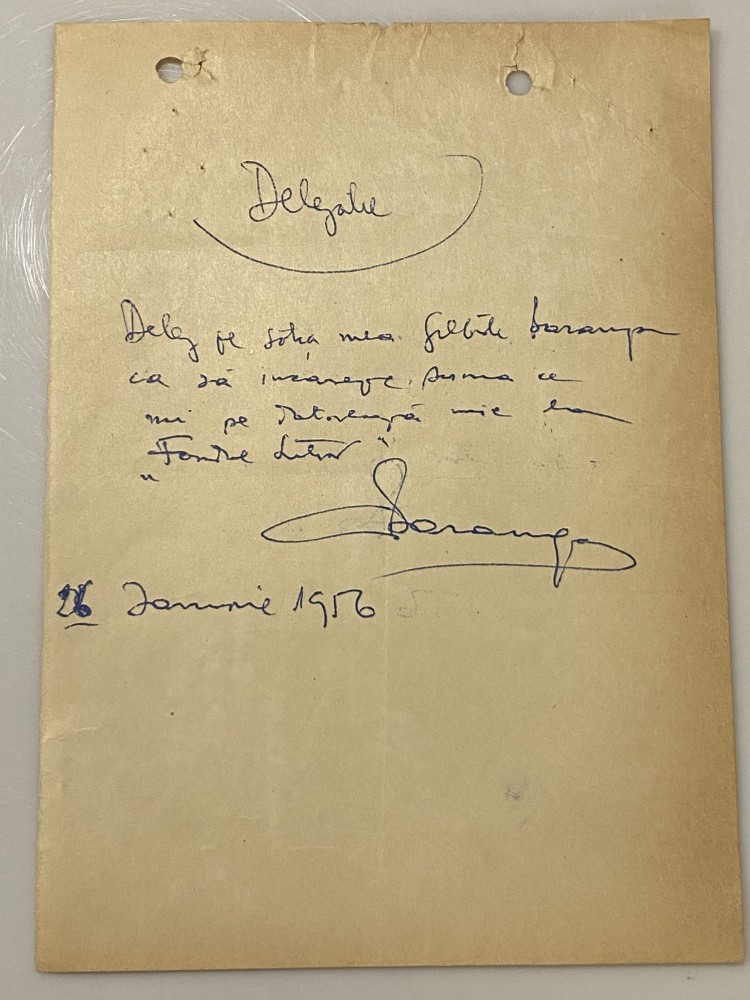 Delegatie
Deleg pe soția mea Baranga
ca să incaseze suma ce
mi pe datorează mie la
"Fondul Literar"
Baranga
26 Ianuarie 1956